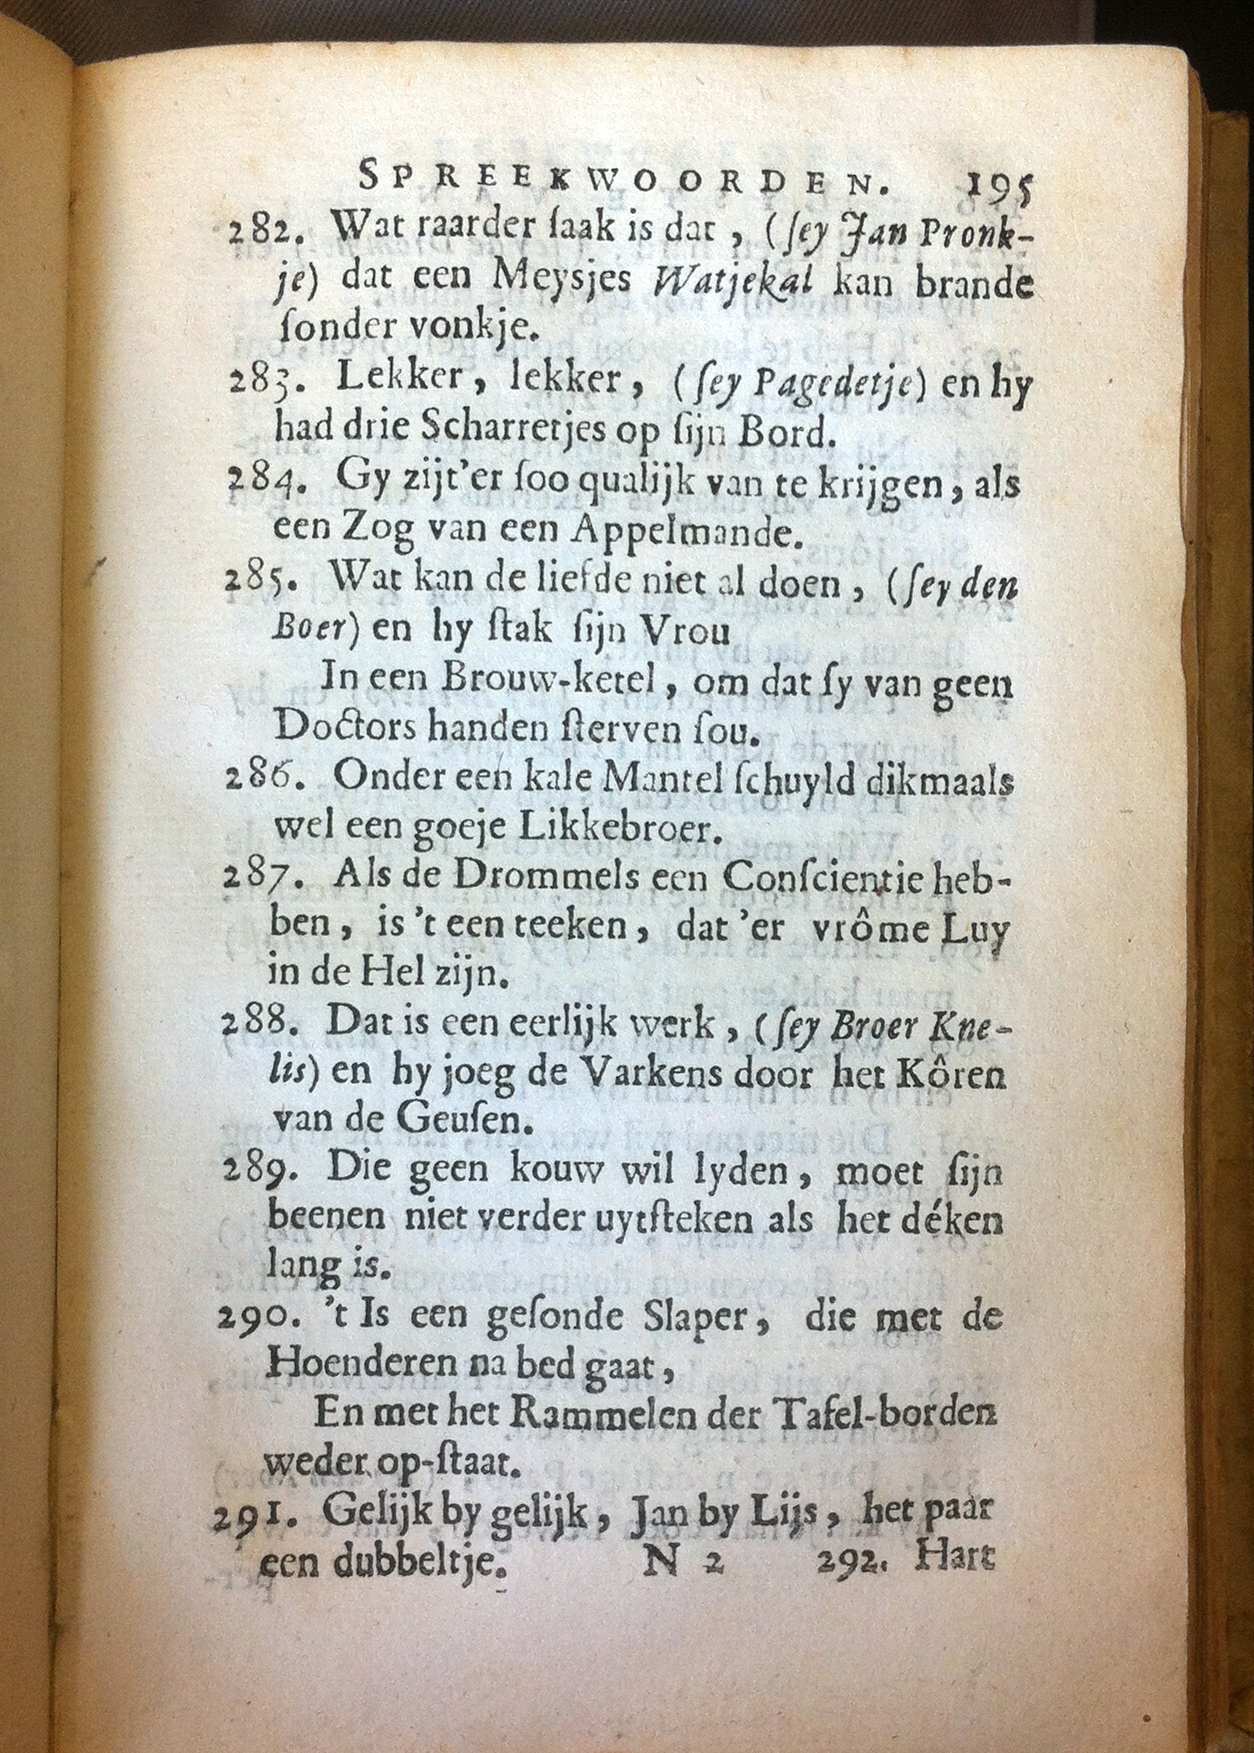 SPREEKWOORDEN. 195
282. Wat raarder ſaak is dat, (ſey Jan Pronk-
je) dat een Meysjes Watjekal kan brande
ſonder vonkje.
283. Lekker, lekker, (ſey Pagedetje) en hy
had drie Scharretjes op ſijn Bord.
284. Gy zijt'er ſoo qualijk van te krijgen, als
een Zog van een Appelmande.
285. Wat kan de liefde niet al doen, (ſey den
Boer) en hy ſtak ſijn Vrou
In een Brouw-ketel, om dat ſy van geen
Doctors handen ſterven ſou.
286. Onder een kale Mantel ſchuyld dikmaals
wel een goeje Likkebroer.
287. Als de Drommels een Conſcientie heb-
ben, is 't een teeken, dat 'er vrôme Luy
in de Hel zijn.
288. Dat is een eerlijk werk, (ſey Broer Kne-
lis) en hy joeg de Varkens door het Kôren
van de Geuſen.
289. Die geen kouw wil lyden, moet ſijn
beenen niet verder uytſteken als het déken
lang is.
290. 't Is een geſonde Slaper, die met de
Hoenderen na bed gaat,
En met het Rammelen der Tafel-borden
weder op-ſtaat.
291. Gelijk by gelijk, Jan by Lijs, het paar
een dubbeltje. N 2 292. Hart